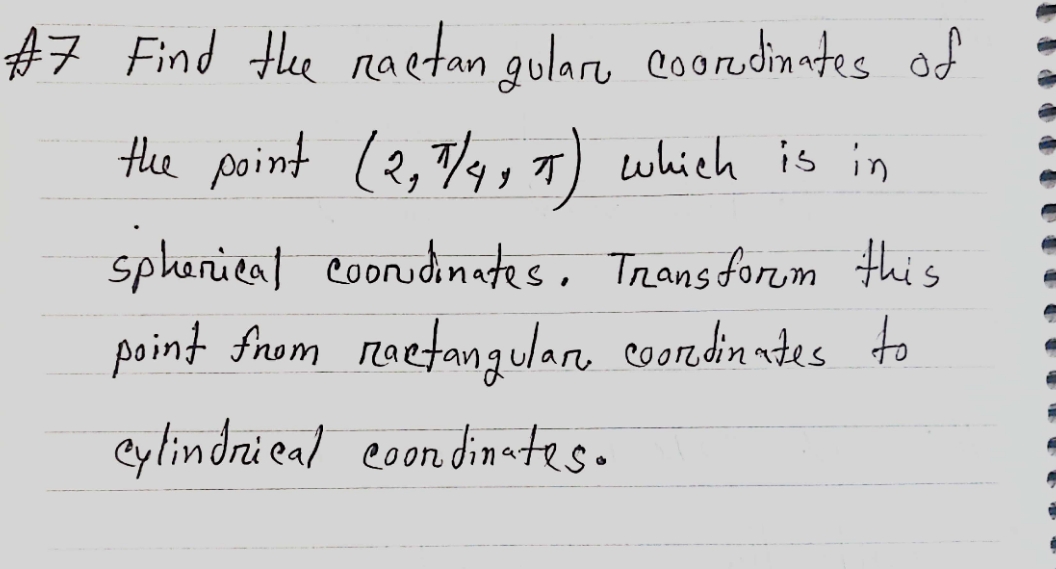 #7 Find the ractangular coordinates of
the point (2, π/4, π) which is in
spherical coordinates. Transform this
point from ractangular coordinates to
cylindrical coordinates.